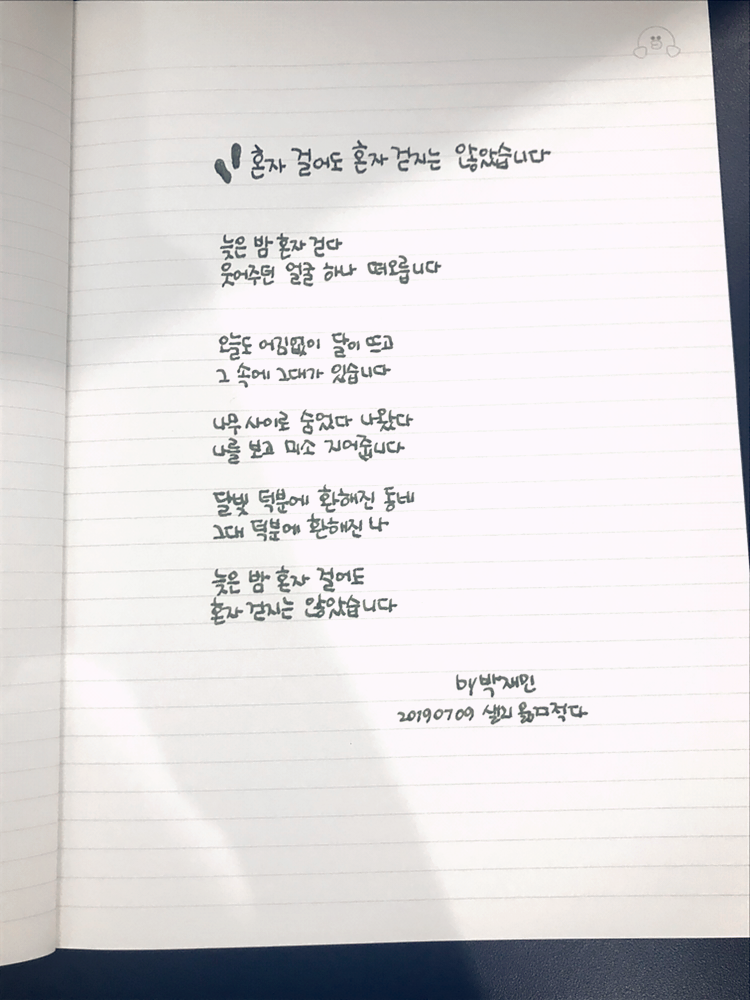 혼자 걸어도 혼자 걷지는 않았습니다
늦은 밤 혼자 걷다
웃어주던 얼굴 하나 떠오릅니다
오늘도 어김없이 달이 뜨고
그 속에 그대가 있습니다
나무 사이로 숨었다 나왔다
나를 보고 미소 지어줍니다
달빛 덕분에 환해진 동네
그대 덕분에 환해진 나
늦은 밤 혼자 걸어도
혼자 걷지는 않았습니다
by 박재민
20190709 샐리 옮겨적다